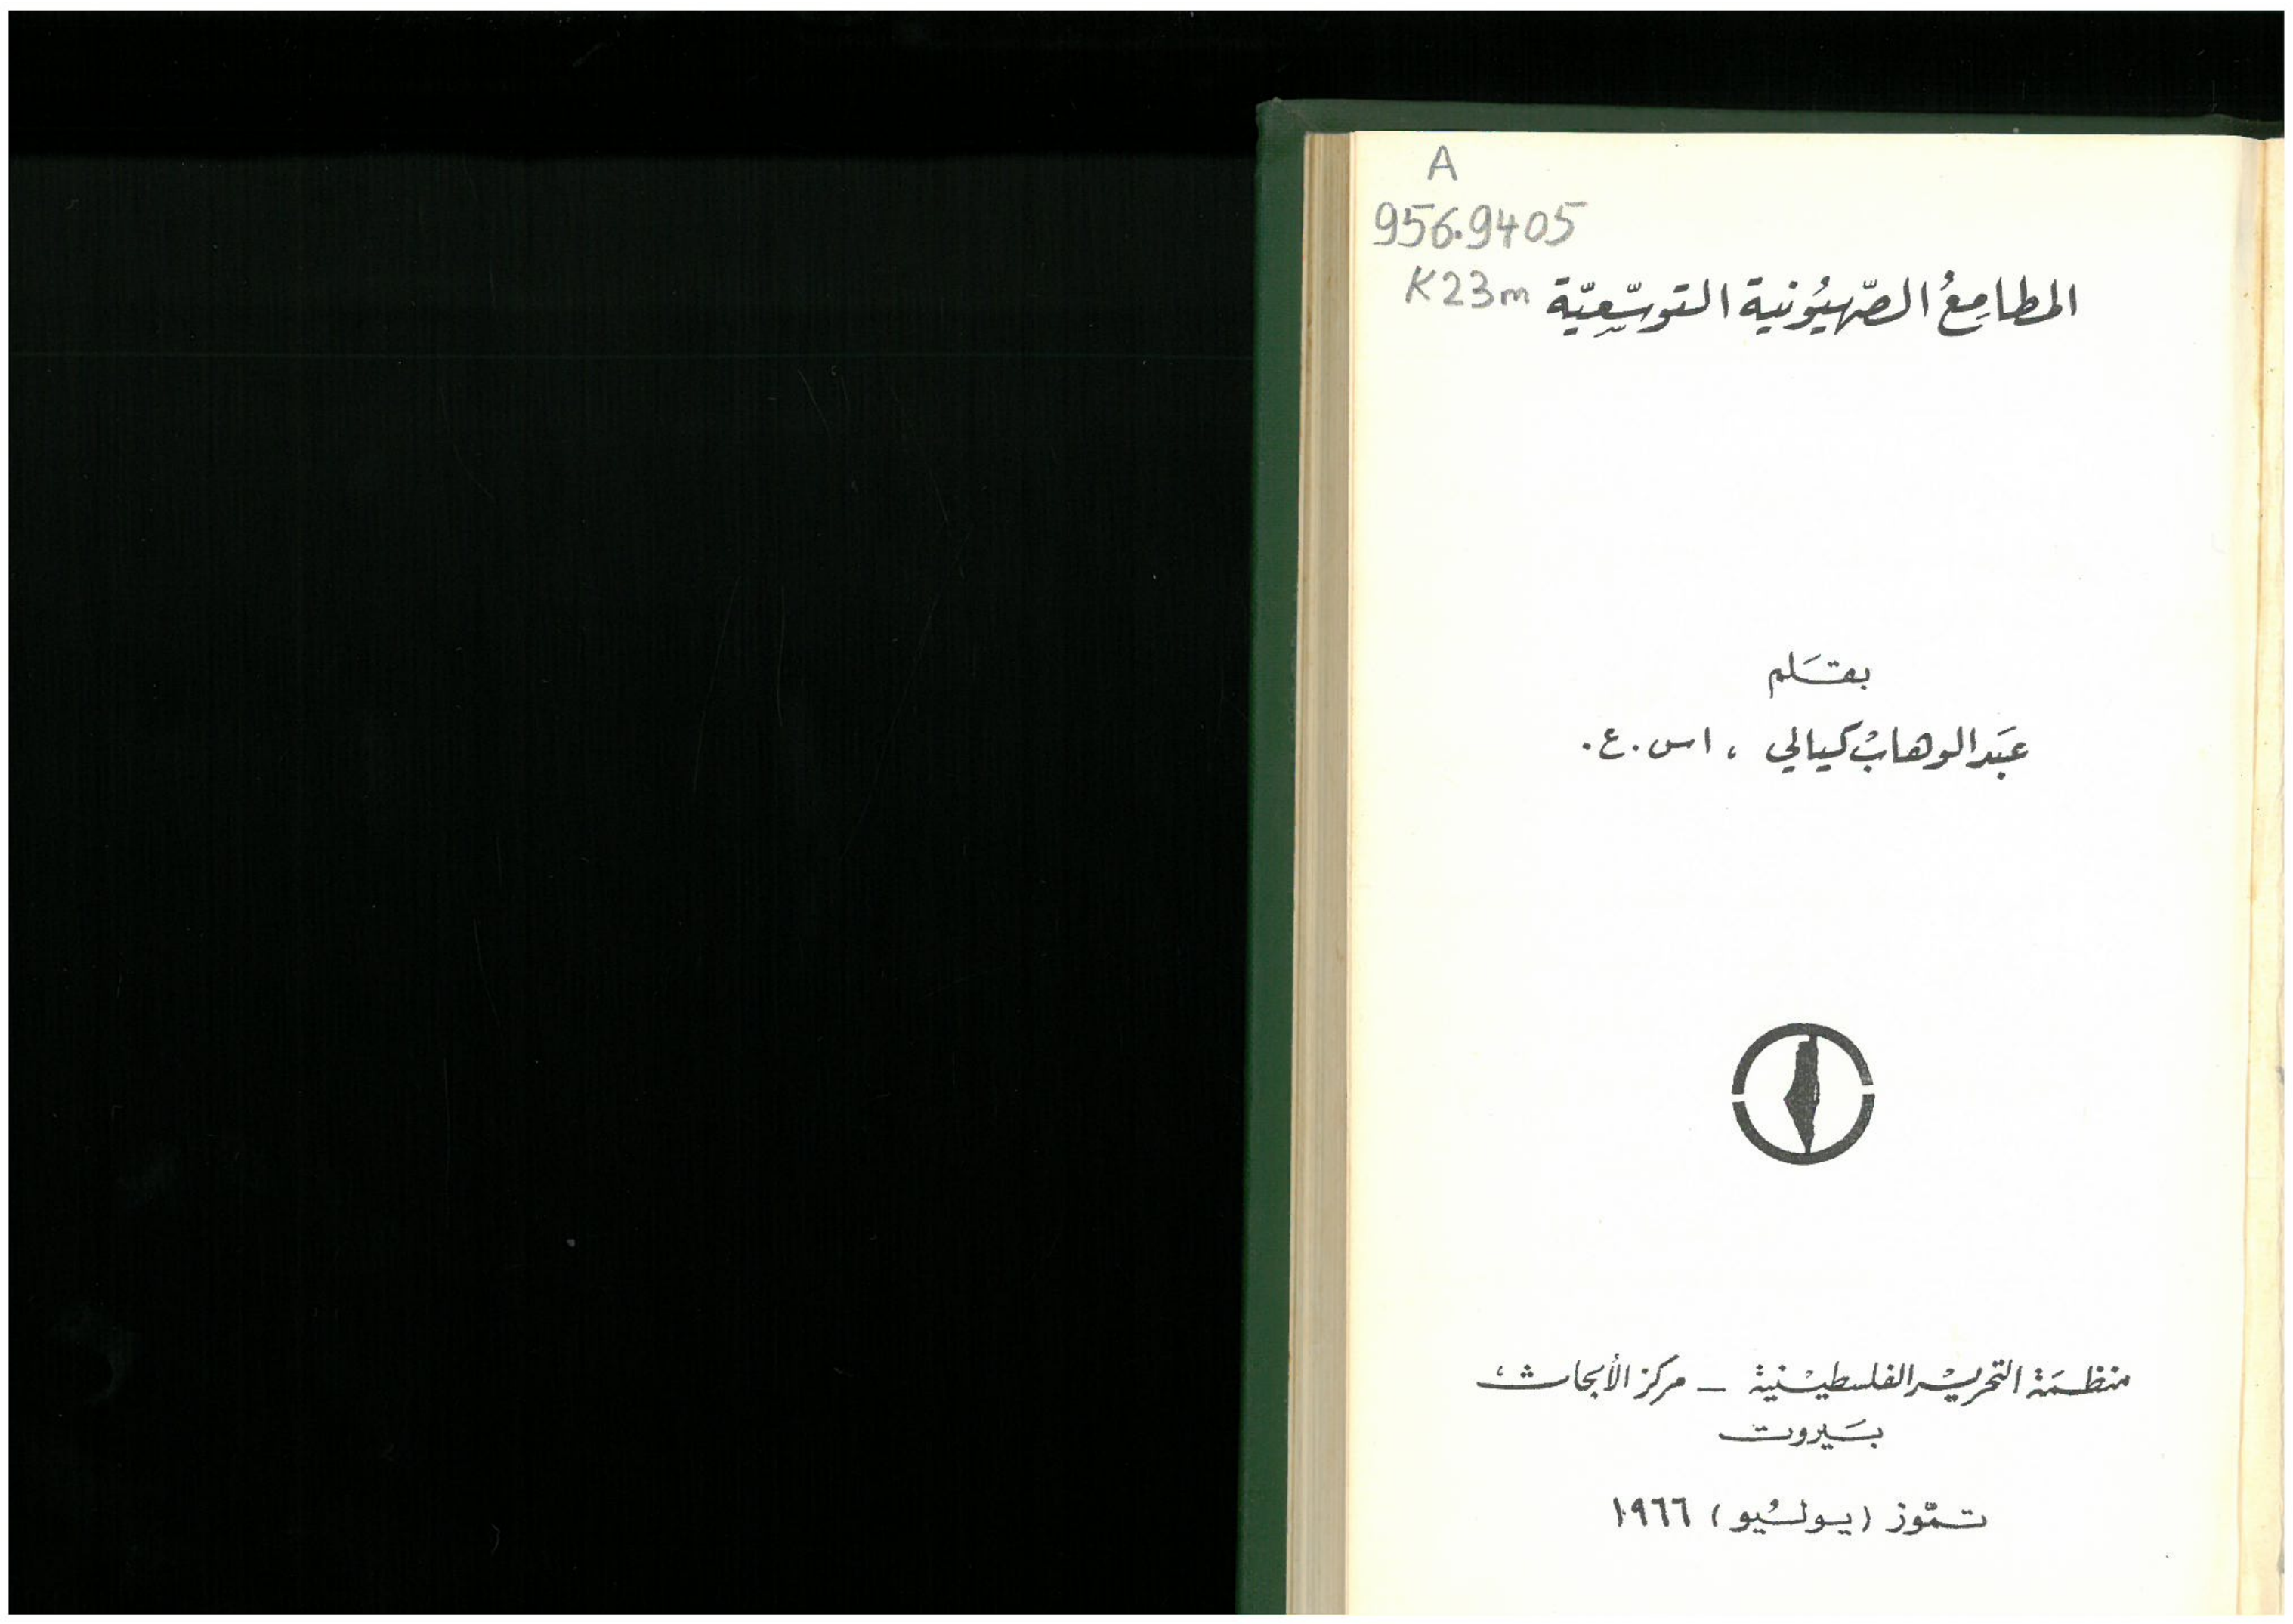 A
956.9405
K23m
المطامِعُ الصّهيُونية التوسّعِيّة
بقَلم
عبَد الوهابْ كيالي ، اس . ع .
منظمَة التحريْر الفلسطيْنية – مركز الأبحاث ،
بَيروت
تمّوز ( يوليُو ) ١٩٦٦